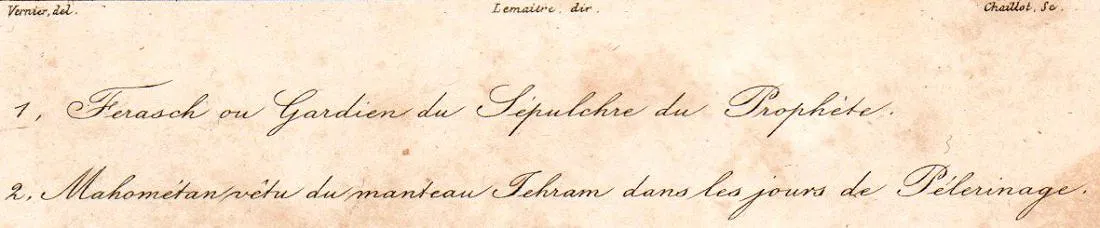 Vernier, del. Lemaitre dir. Chaillot, Sc
1, Ferasch ou Gardien du Sépulchre du Prophète.
2. Mahométan vêtu du manteau Jehram dans les jours de Pélerinage.